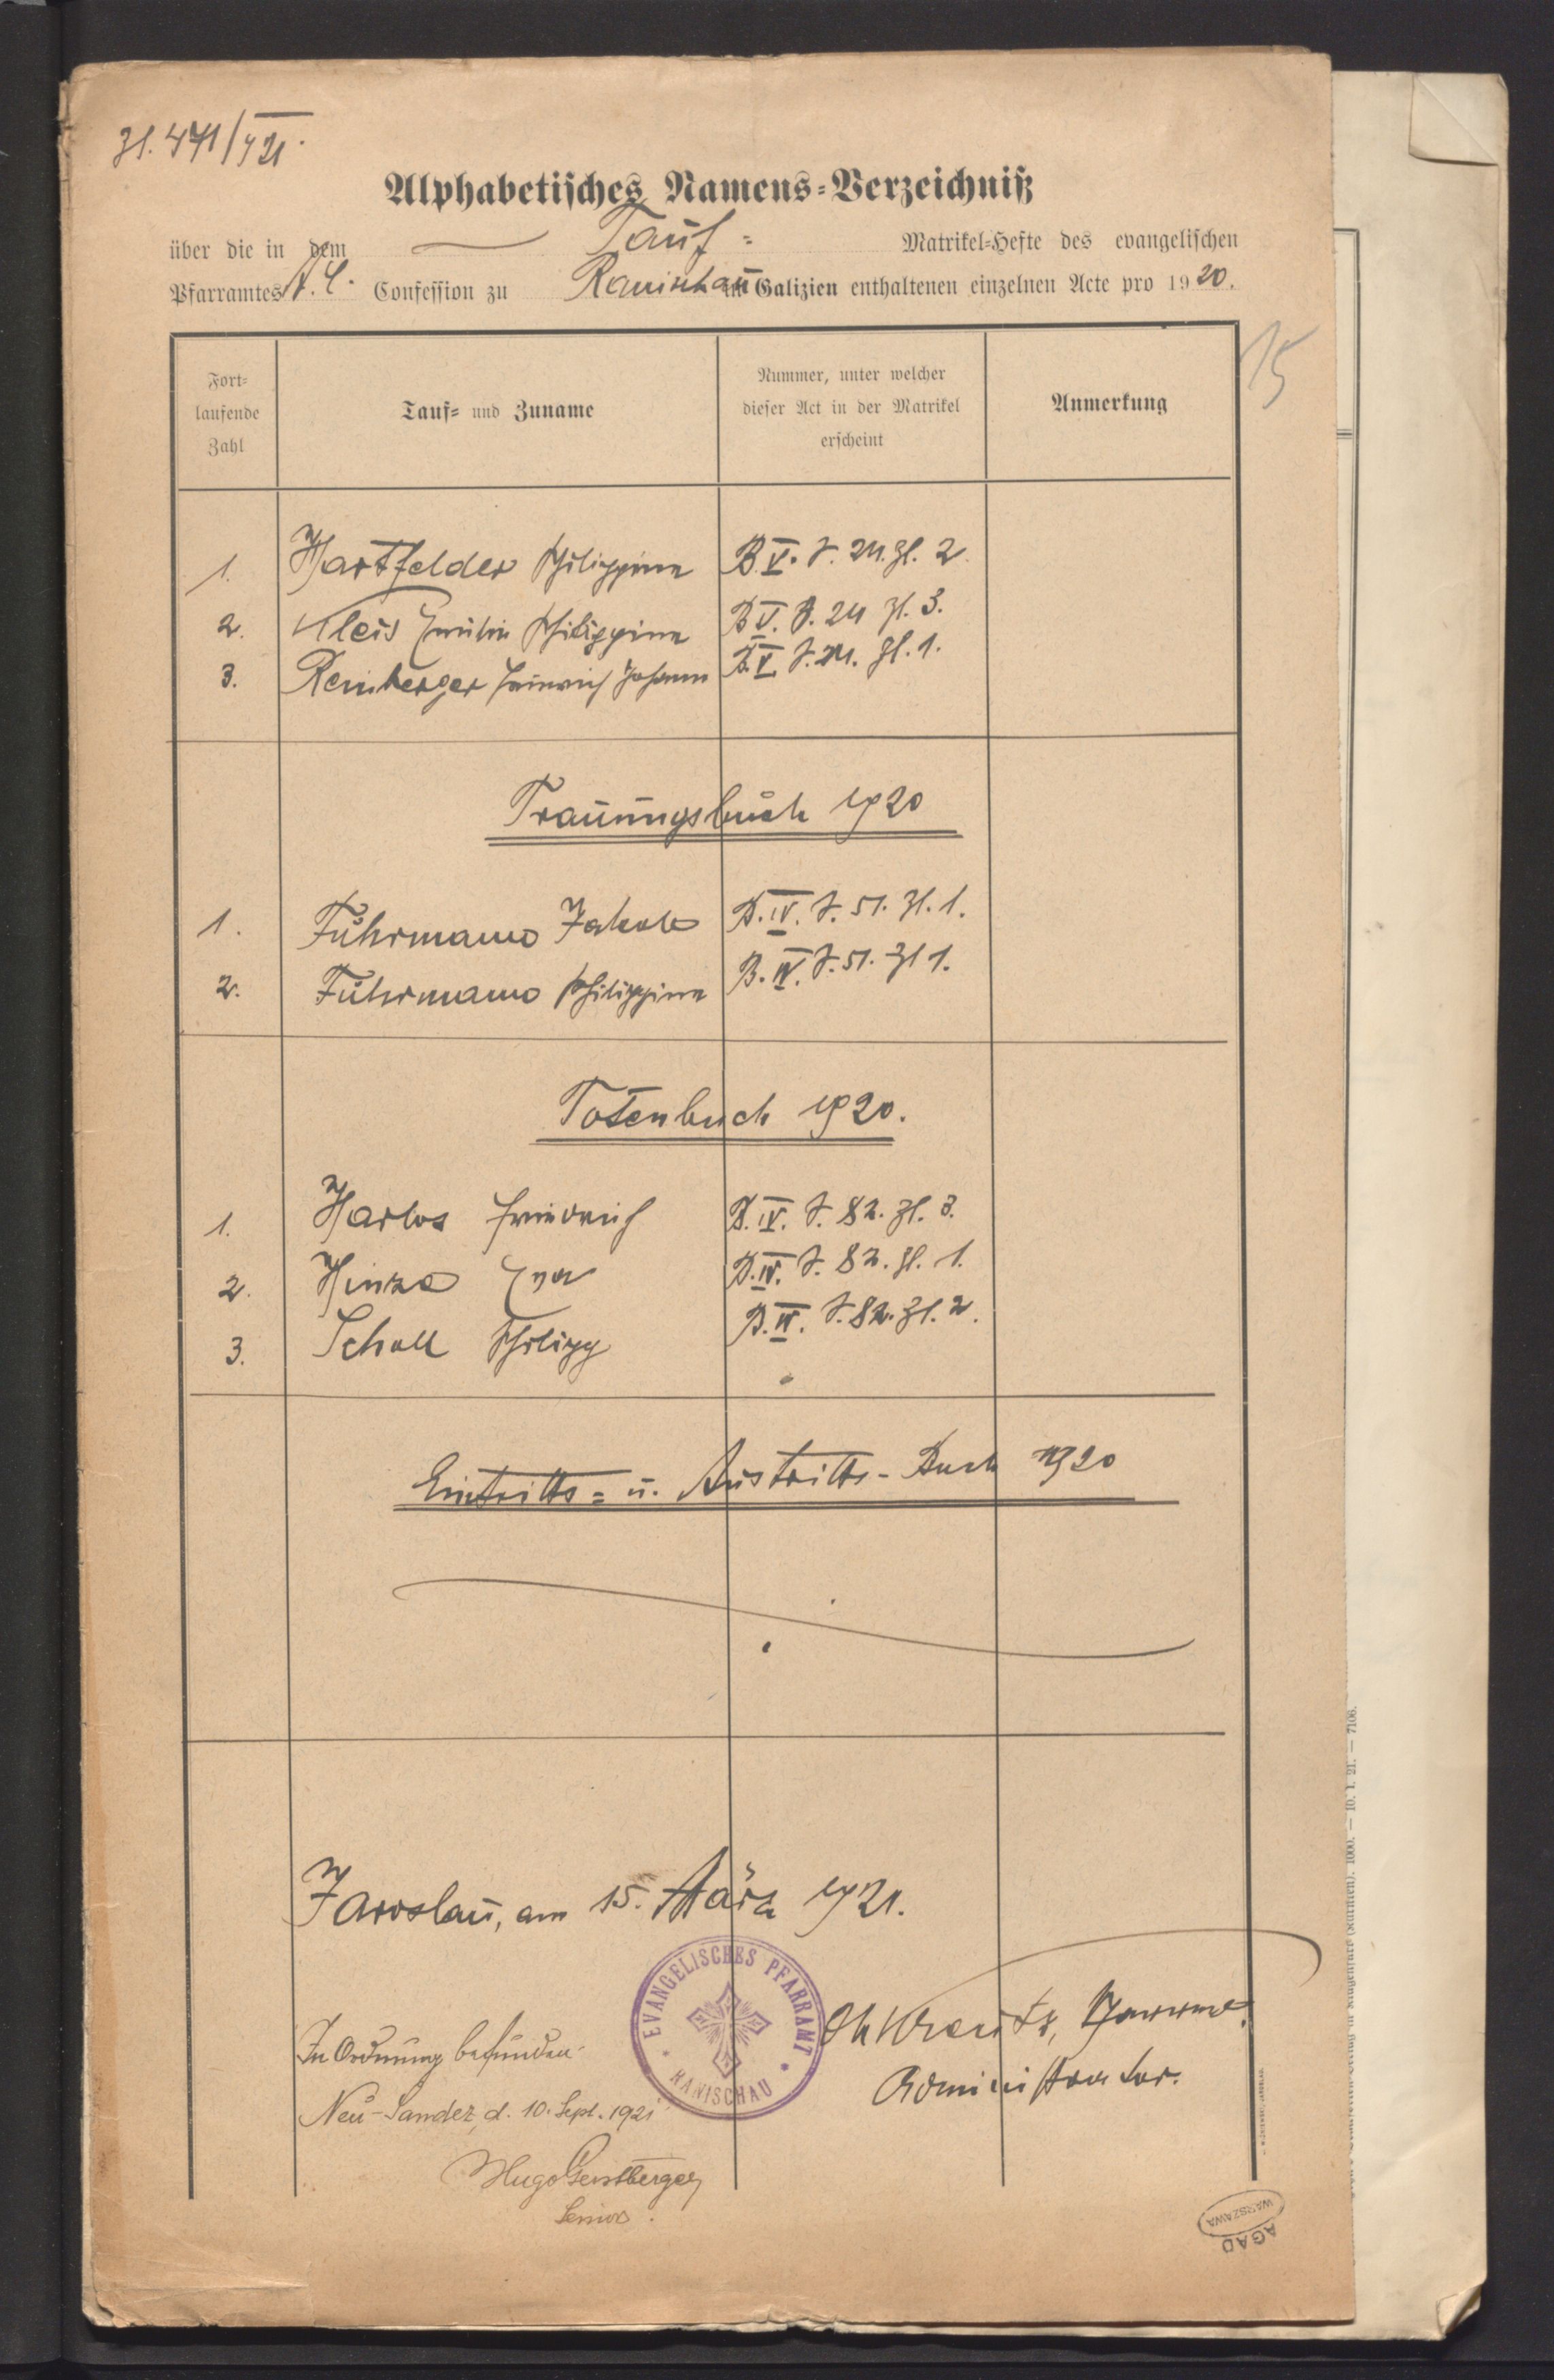 Zl. 471/V21.
Alphabetisches Namens-Verzeichniß
über die in dem Tauf- Matrikel-Hefte des evangelischen
Pfarramtes A. C. Confession zu Ranischau in Galizien enthaltenen einzelnen Acte pro 1920.
15
Fort-
laufende
Zahl
Tauf- und Zuname
Nummer, unter welcher
dieser Act in der Matrikel
erscheint
Anmerkung
1. Hartfelder Philippine B V. S. 24. Zl. 2.
2. Kleis Emilie Philippine B V. S. 24 Zl. 3.
3. Reinberger Heinrich Johann B. V. S. 24. Zl. 1.
Trauungsbuch 1920
1. Fuhrmann Jakob B. IV. S. 51. Zl. 1.
2. Fuhrmann Philippine B. IV. S. 51. Zl 1.
Totenbuch 1920.
1. Harlos Friedrich B. IV. S. 82. Zl. 3.
2. Hinza Eva B. IV. S. 82. Zl. 1.
3. Scholl Philipp B. IV. S. 82. Zl. 2.
Eintritts- u. Austritts-Buch 1920
Jaroslau, am 15. März 1921.
EVANGELISCHES PFARRAMT
RANISCHAU
Administrator.
In Ordnung befunden.
Neu-Sandez, d. 10. Sept. 1921
Hugo Gerstberger
Senior.
AGAD
WARSZAWA
1000. — 10. I. 21. — 7106.